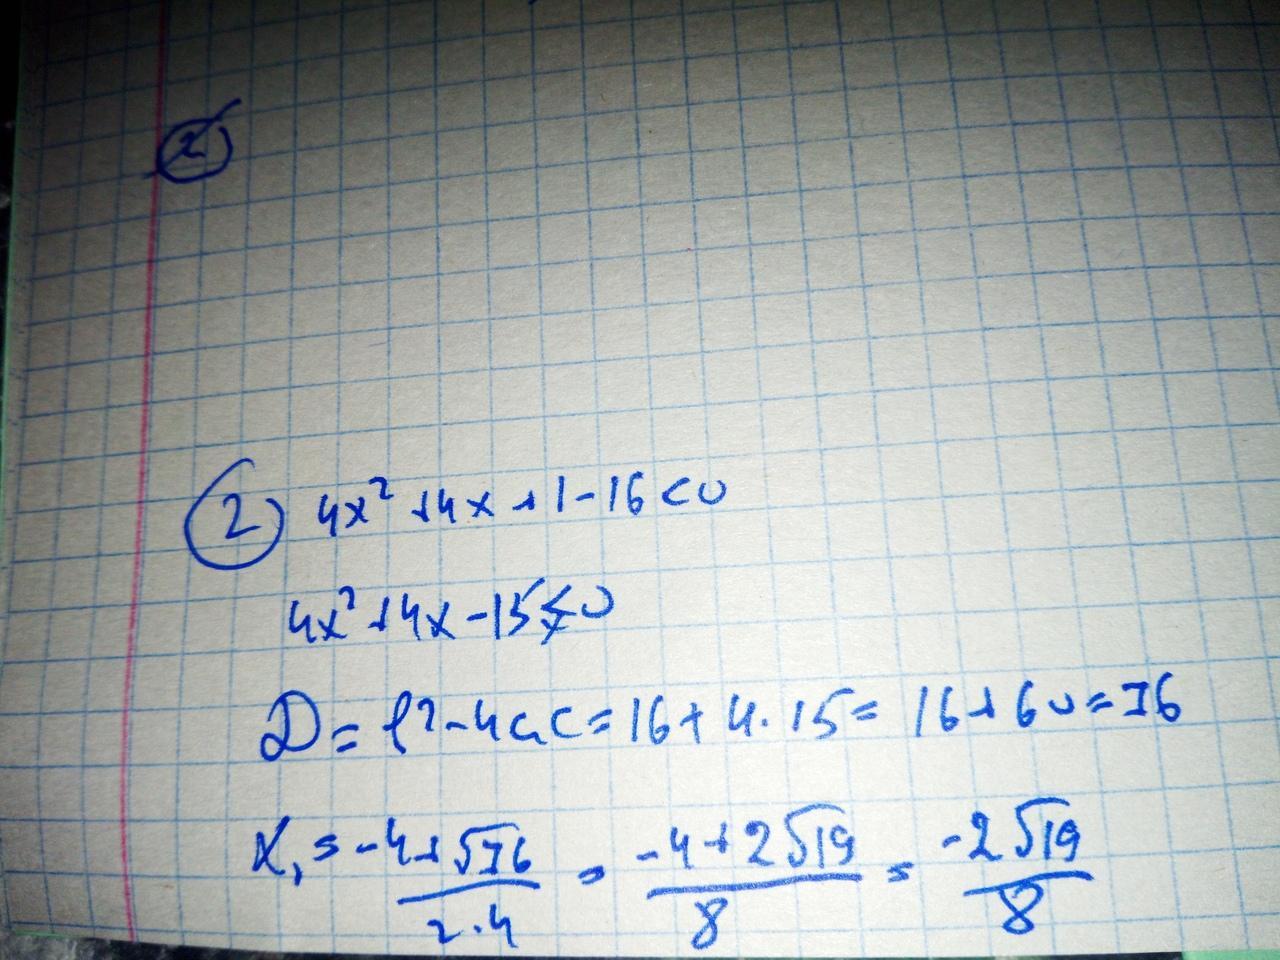 2
② 4x² + 4x + 1 - 16 < 0
4x² + 4x - 15 < 0
D = b² - 4ac = 16 + 4 · 15 = 16 + 60 = 76
x₁ = (-4 + √76)/(2 · 4) = (-4 + 2√19)/8 = (-2√19)/8